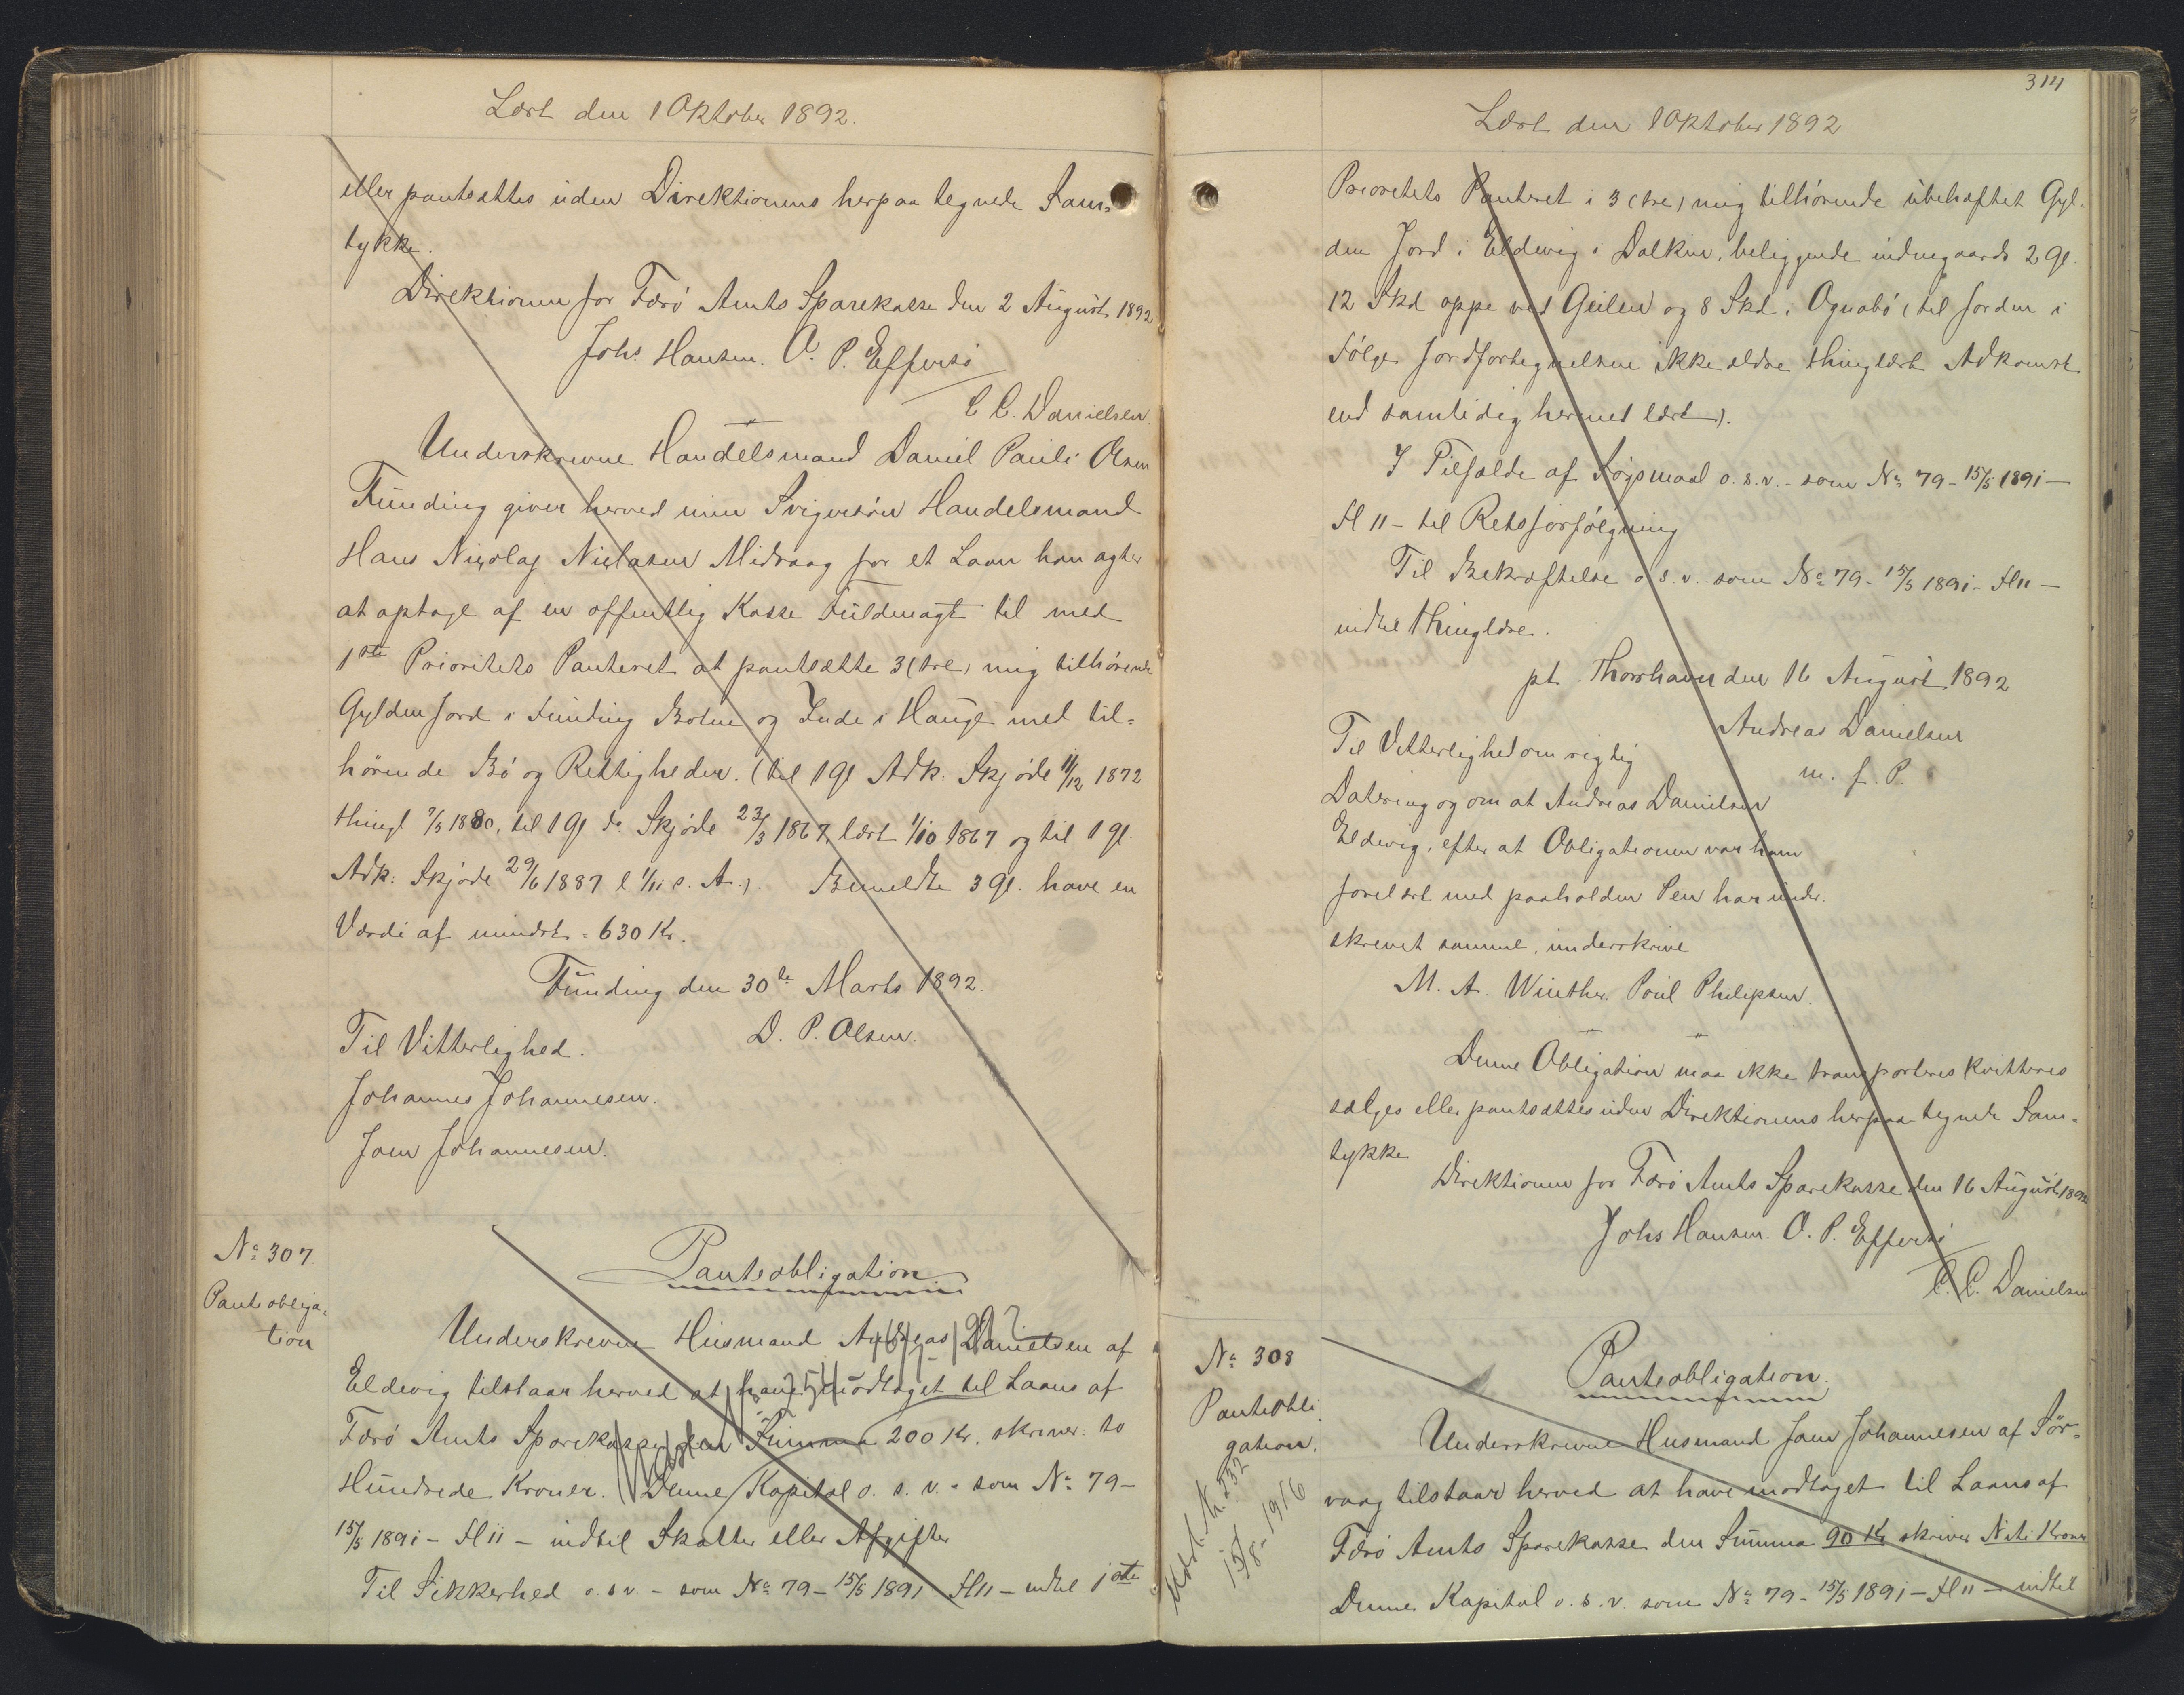 Læst den 1 Oktober 1892.
eller pantsættes uden Direktionens herpaa tegnede Sam-
tykke.
Direktionen for Færö Amts Sparekasse den 2 August 1892
Johs Hansen. O. P. Effersö
C C. Danielsen.
Underskrevne Handelsmand Daniel Pauli Olsen
Funding giver herved min Svigersön Handelsmand
Hans Nicolaj Niclasen Midvaag for et Laan han agter
at optage af en offentlig Kasse Fuldmagt til med
1ste Prioritets Panteret at pantsætte 3 (tre) mig tilhörende
Gylden Jord i Funding Botne og Inde i Hauge med til-
hörende Bö og Rettigheder. (til 1 Gl Adk: Skjöde 11/12 1872
thingl 7/5 1880, til 1 Gl do Skjöde 23/3 1867, læst 1/10 1867 og til 1 gl.
Adk: Skjöde 29/6 1887 l 1/11 s. A.). Bemeldte 3 Gl. have en
Værdi af mindst = 630 Kr.
Funding den 30te Marts 1892.
Til Vitterlighed. D. P. Olsen.
Johannes Johannesen.
Joen Johannesen.
No 307.
Panteobliga-
tion
Panteobligation.
Underskrevne Husmand Andreas Danielsen af
Eldevig tilstaar herved at have modtaget til Laans af
Færö Amts Sparekasse den Summa 200 Kr. skriver to
Hundrede Kroner. Denne Kapital o. s. v. - som No 79-
15/5 1891 - H 11 - indtil Skatter eller Afgifter
Til Sikkerhed o. s v - som No 79 - 15/5 1891 H 11 - indtil 1ste
314
Læst den 1 Oktober 1892
Prioritets Panteret i 3 (tre) mig tilhörende ubehæftet Gyl-
den Jord i Eldevig i Dalknu, beliggende indengaards 2 gl.
12 Skd oppe ved Geilen og 8 Skd. i Ognabö (til Jorden i
Fölge Jordfortegnelsen ikke ældre thinglæst Adkomst
end samtidig hermed læst).
I Tilfælde af Sögsmaal o. s. v. - som No 79 - 15/5 1891 -
H 11 - til Retsforfölgning
Til Bekræftelse o s. v. som No 79 - 15/5 1891 - H 11 -
indtil thinglæse.
pt. Thorshavn den 16 August 1892
Andreas Danielsen
m. f. P.
Til Vitterlighed om rigtig
Datering og om at Andreas Danielsen
Eldevig, efter at Obligationen var ham
forelæst med paaholden Pen har under-
skrevet samme, underskrive
M. A. Winther. Poul Philipsen.
Denne Obligation maa ikke transporteres kvitteres
sælges eller pantsættes uden Direktionens herpaa tegnede Sam-
tykke
Direktionen for Færö Amts Sparekasse den 16 August 1892
Johs Hansen. O. P. Effersö
C. C. Danielsen
No 308
Panteobli-
gation.
Udsl. No. 232
15/8 - 1916
Panteobligation.
Underskrevne Husmand Joen Johannesen af Sör-
vaag tilstaar herved at have modtaget til Laans af
Færö Amts Sparekasse den Summa 90 Kr skriver Niti Kroner
Denne Kapital o. s. v. som No 79 - 15/5 1891 - H 11 - indtil